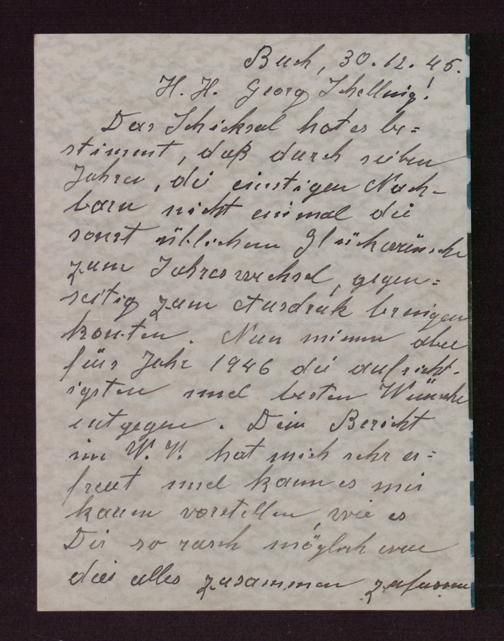 Buch, 30.12.45.
H. H. Georg Schelling!
Das Schicksal hat es be=
stimmt, daß durch sieben
Jahre, die einstigen Nach-
barn nicht einmal die
sonst üblichen Glückwünsche
zum Jahreswechsel, gegen=
seitig zum Ausdruk bringen
konten. Nun nimm aber
für Jahr 1946 die aufricht-
igsten und besten Wünsche
entgegen. Dein Bericht
im V.V. hat mich sehr er=
freut und kann es mir
kaum vorstellen, wie es
Dir so rasch möglich war
dies alles zusammen